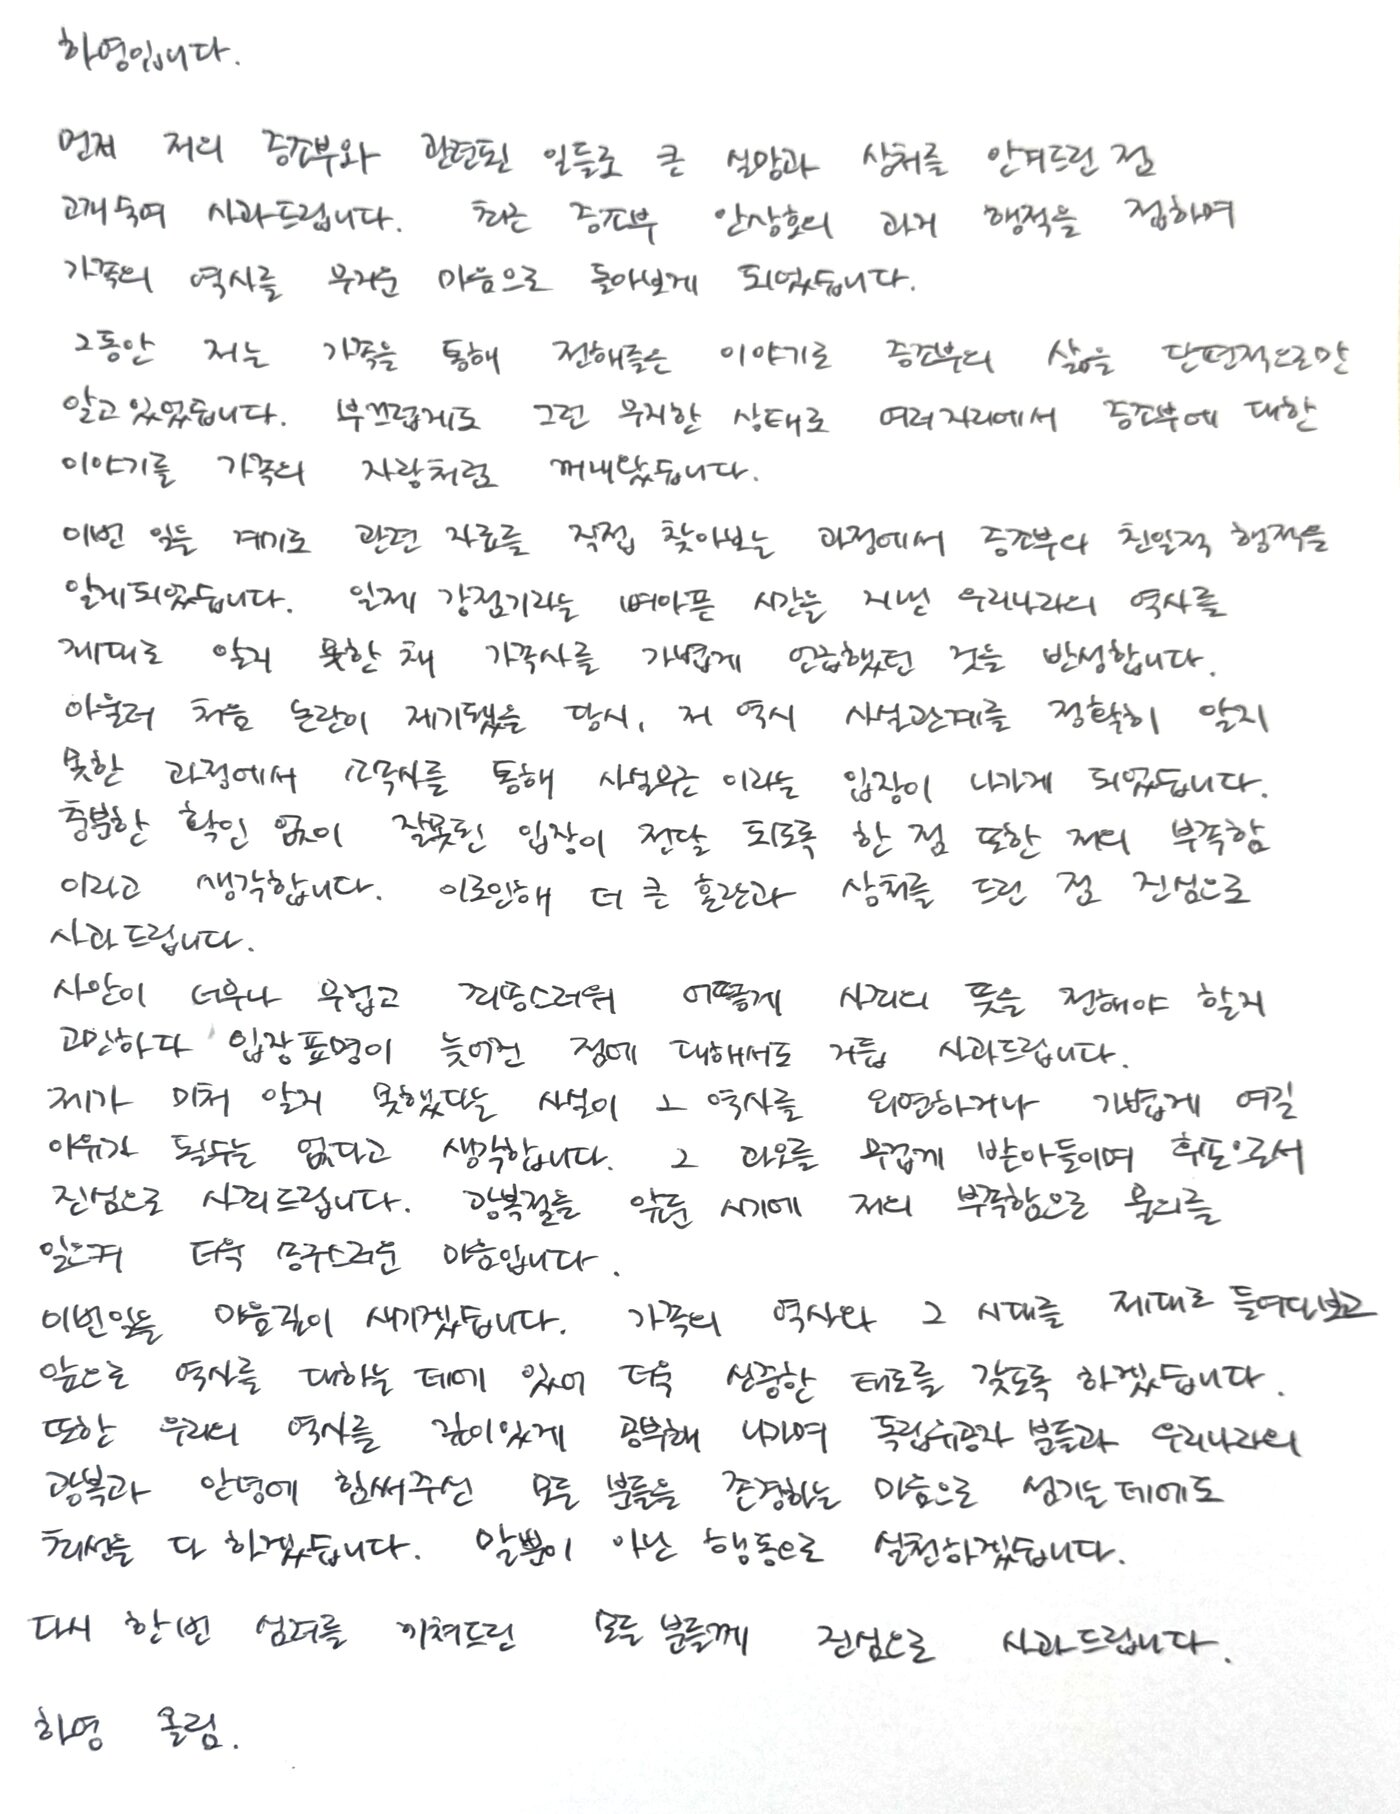 하영입니다.
먼저 저의 증조부와 관련된 일들로 큰 실망과 상처를 안겨드린 점
고개 숙여 사과드립니다. 최근 증조부 안상호의 과거 행적을 접하며
가족의 역사를 무거운 마음으로 돌아보게 되었습니다.
그동안 저는 가족을 통해 전해들은 이야기로 증조부의 삶을 단편적으로만
알고 있었습니다. 부끄럽게도 그런 무지한 상태로 여러 자리에서 증조부에 대한
이야기를 가족의 자랑처럼 꺼내왔습니다.
이번 일을 계기로 관련 자료를 직접 찾아보는 과정에서 증조부의 친일적 행적을
알게 되었습니다. 일제 강점기라는 뼈아픈 시간을 지낸 우리나라의 역사를
제대로 알지 못한 채 가족사를 가볍게 언급했던 것을 반성합니다.
아울러 처음 논란이 제기됐을 당시, 저 역시 사실관계를 정확히 알지
못한 과정에서 소속사를 통해 사실무근 이라는 입장이 나가게 되었습니다.
충분한 확인 없이 잘못된 입장이 전달 되도록 한 점 또한 저의 부족함
이라고 생각합니다. 이로인해 더 큰 혼란과 상처를 드린 점 진심으로
사과드립니다.
사안이 너무나 무겁고 죄송스러워 어떻게 사죄의 뜻을 전해야 할지
고민하다 입장표명이 늦어진 점에 대해서도 거듭 사과드립니다.
제가 미처 알지 못했다는 사실이 그 역사를 외면하거나 가볍게 여길
이유가 될수는 없다고 생각합니다. 그 과오를 무겁게 받아들이며 후손으로서
진심으로 사죄드립니다. 광복절을 앞둔 시기에 저의 부족함으로 물의를
일으켜 더욱 송구스러운 마음입니다.
이번일을 마음깊이 새기겠습니다. 가족의 역사와 그 시대를 제대로 들여다보고
앞으로 역사를 대하는 데에 있어 더욱 신중한 태도를 갖도록 하겠습니다.
또한 우리의 역사를 깊이있게 공부해 나가며 독립유공자 분들과 우리나라의
광복과 안녕에 힘써주신 모든 분들을 존경하는 마음으로 섬기는 데에도
최선을 다 하겠습니다. 말뿐이 아닌 행동으로 실천하겠습니다.
다시 한번 심려를 끼쳐드린 모든 분들께 진심으로 사과드립니다.
하영 올림.